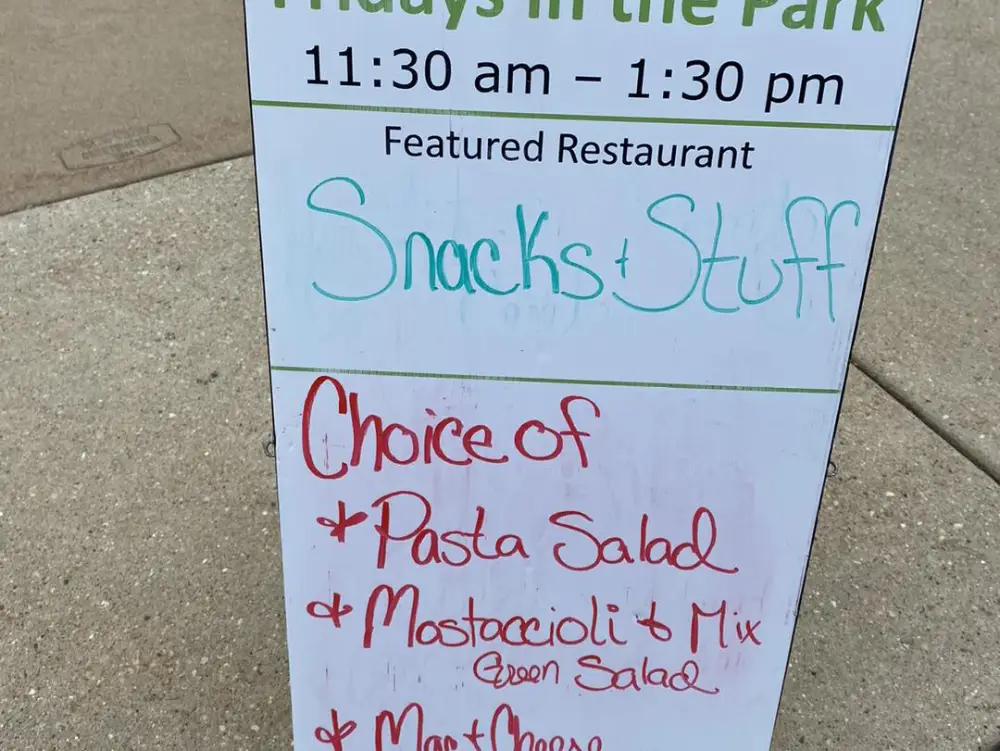 Fridays in the Park
11:30 am – 1:30 pm
Featured Restaurant
Snacks + Stuff
Choice of
* Pasta Salad
* Mostaccioli & Mix
Green Salad
* Mac + Cheese